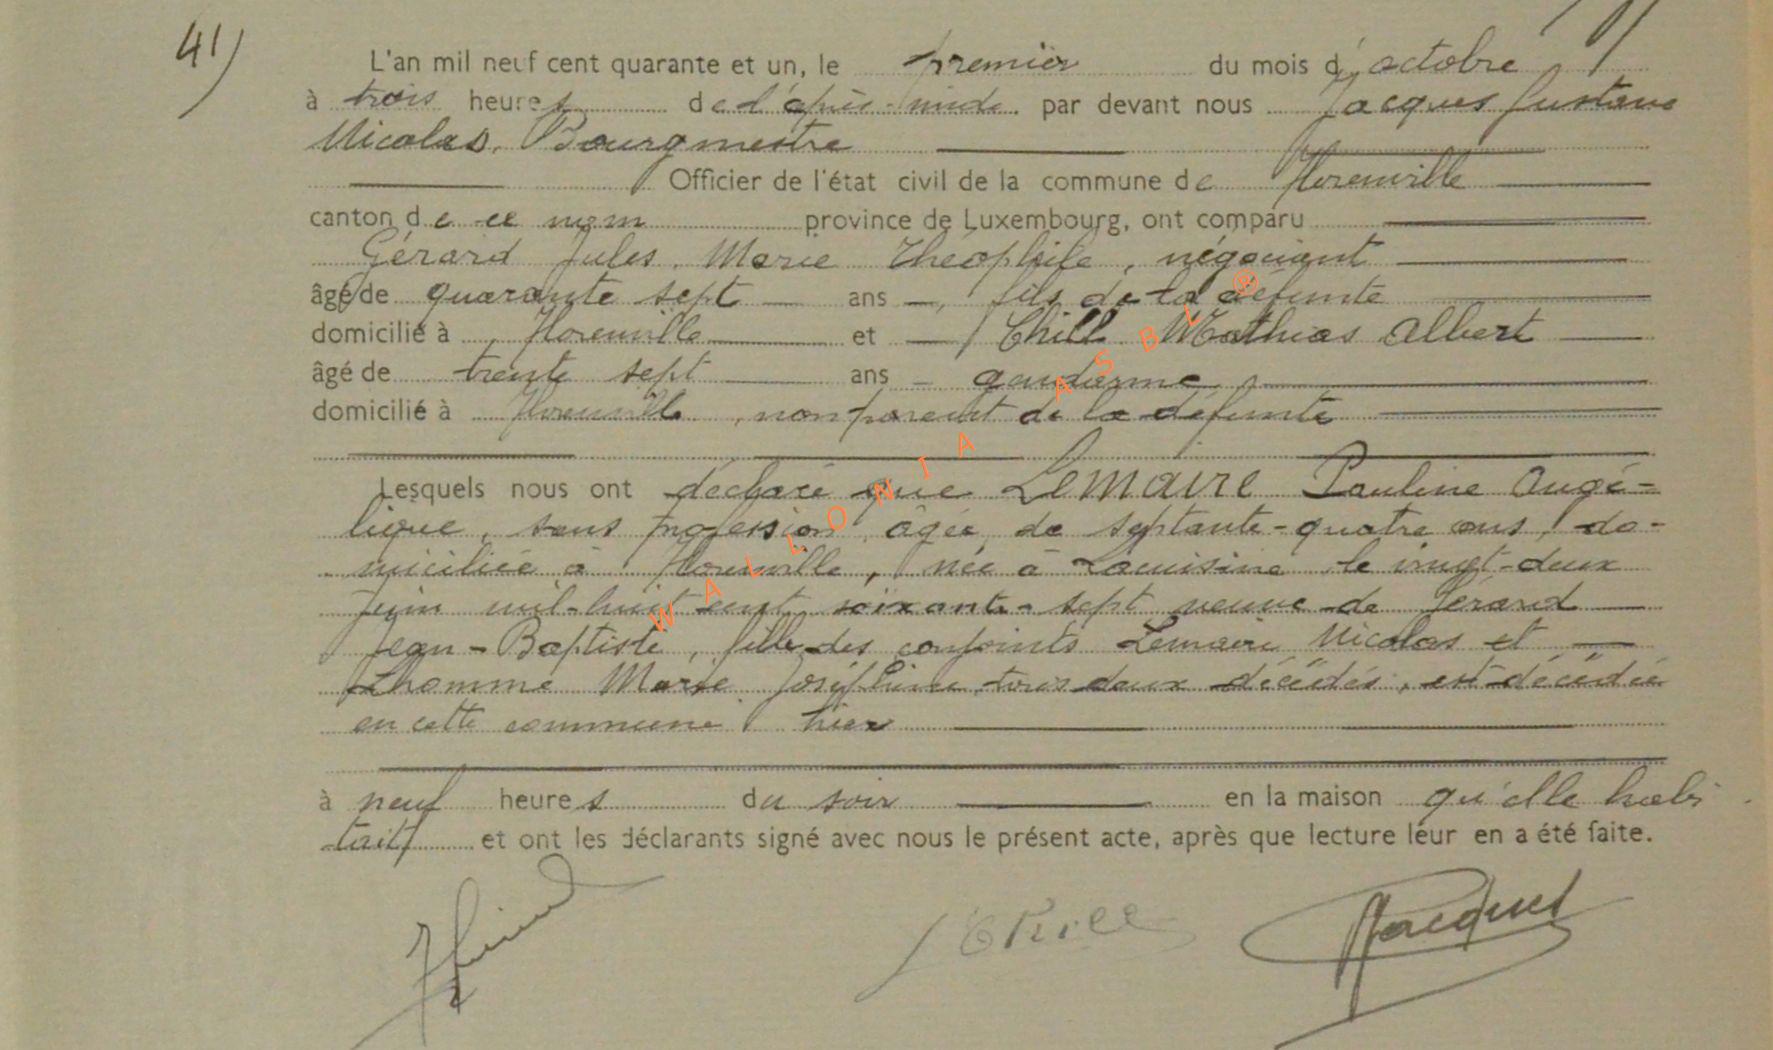 41)
L'an mil neuf cent quarante et un, le premier du mois d'octobre
à trois heures de l'après-midi par devant nous Jacques Gustave
Nicolas, Bourgmestre
Officier de l'état civil de la commune de Florenville
canton de ce nom province de Luxembourg, ont comparu
Gérard Jules Marie Théophile, négociant
âgé de quarante sept ans, fils de la défunte
domicilié à Florenville et Thill Mathias Albert
âgé de trente sept ans gendarme
domicilié à Florenville, non parent de la défunte
Lesquels nous ont déclaré que Lemaire Pauline Angé-
lique, sans profession, âgée de septante-quatre ans, do-
miciliée à Florenville, née à Lacuisine le vingt-deux
juin mil-huit cent soixante-sept veuve de Gérard
Jean-Baptiste, fille des conjoints Lemaire Nicolas et
Lhomme Marie Joséphine, tous deux décédés, est décédée
en cette commune hier
à neuf heures du soir en la maison qu'elle habi
tait et ont les déclarants signé avec nous le présent acte, après que lecture leur en a été faite.
Thill Jacques
WALLONIA ASBL ®